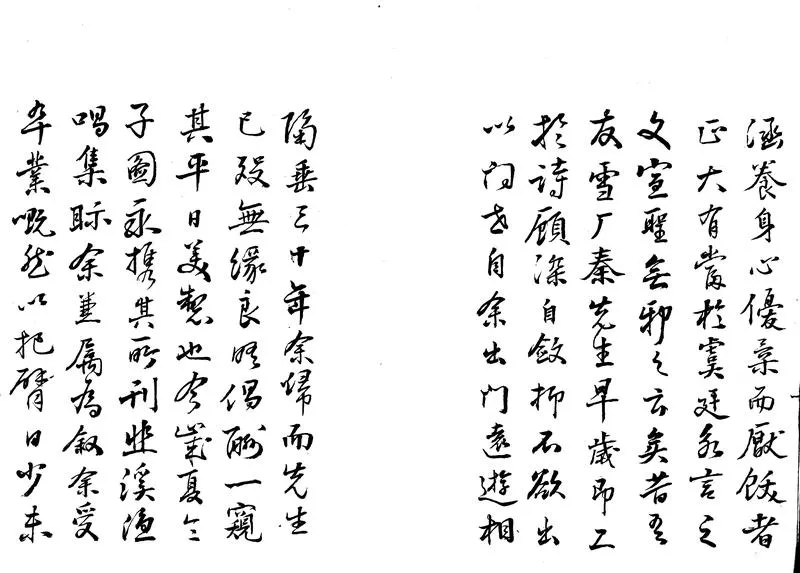 涵養身心優柔而厭飫者
正大有當於虞廷永言之
文宣聖無邪之云矣昔吾
友雪厂秦先生早歲即工
於詩顧深自斂抑不欲出
以問世自余出門遠遊相
隔垂三十年余歸而先生
已歿無緣良晤倡酬一窺
其平日美製也今歲夏令
子圖永攜其所刊韭溪漁
唱集眎余並屬為敘余受
卒業嘅然以把臂日少未